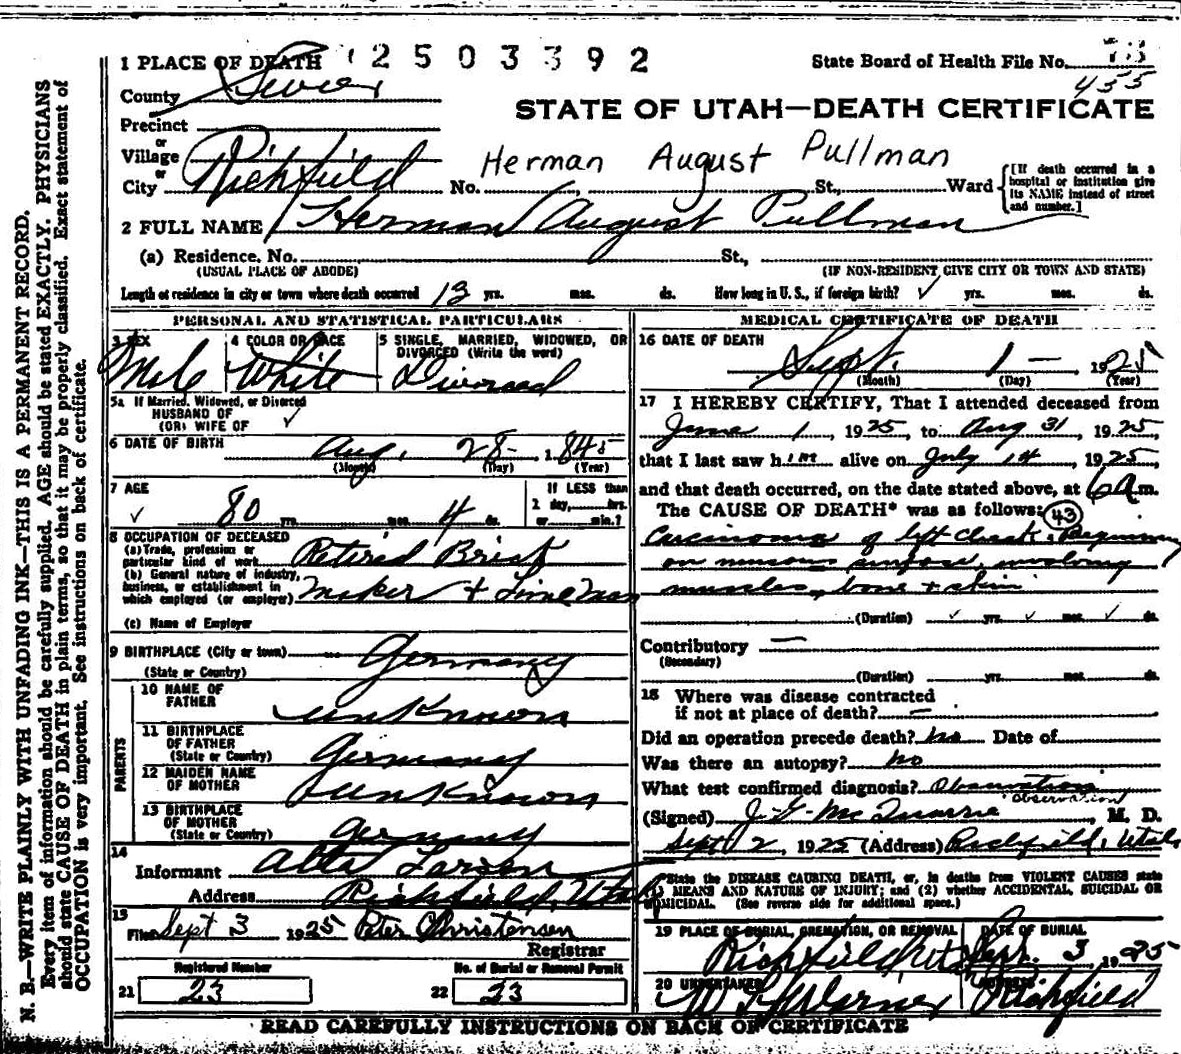 N. B.—WRITE PLAINLY WITH UNFADING INK—THIS IS A PERMANENT RECORD.
Every item of information should be carefully supplied. AGE should be stated EXACTLY. PHYSICIANS
should state CAUSE OF DEATH in plain terms, so that it may be properly classified. Exact statement of
OCCUPATION is very important. See instructions on back of certificate.
1 PLACE OF DEATH 2503392 State Board of Health File No. 78
455
County Sevier
STATE OF UTAH—DEATH CERTIFICATE
Precinct
or
Village
or
Herman August Pullman
City Richfield No. St., Ward
[If death occurred in a
hospital or institution give
its NAME instead of street
and number.]
2 FULL NAME Herman August Pullman
(a) Residence. No. St.,
(USUAL PLACE OF ABODE) (IF NON-RESIDENT GIVE CITY OR TOWN AND STATE)
Length of residence in city or town where death occurred 13 yrs. mos. ds. How long in U. S., if foreign birth? ✓ yrs. mos. ds.
PERSONAL AND STATISTICAL PARTICULARS
3 SEX
Male
4 COLOR OR RACE
White
5 SINGLE, MARRIED, WIDOWED, OR
DIVORCED (Write the word)
Divorced
5a If Married, Widowed, or Divorced
HUSBAND OF
(OR) WIFE OF ✓
6 DATE OF BIRTH Aug. 28- 1845
(Month) (Day) (Year)
7 AGE
✓ 80 yrs. mos. 4 ds.
If LESS than
1 day, hrs.
or min.?
8 OCCUPATION OF DECEASED
(a) Trade, profession or
particular kind of work Retired Brick
(b) General nature of industry,
business, or establishment in
which employed (or employer) Maker + Lime Man
(c) Name of Employer
9 BIRTHPLACE (City or town)
(State or Country) Germany
PARENTS
10 NAME OF
FATHER unknown
11 BIRTHPLACE
OF FATHER
(State or Country) Germany
12 MAIDEN NAME
OF MOTHER unknown
13 BIRTHPLACE
OF MOTHER
(State or Country) Germany
14
Informant Larsen
Address Richfield, Utah
15
Filed Sept 3 1925 Peter Christensen
Registrar
Registered Number
21 23
No. of Burial or Removal Permit
22 23
MEDICAL CERTIFICATE OF DEATH
16 DATE OF DEATH
Sept. 1 — 1925
(Month) (Day) (Year)
17 I HEREBY CERTIFY, That I attended deceased from
June 1, 1925, to Aug 31, 1925,
that I last saw him alive on July 14, 1925,
and that death occurred, on the date stated above, at 6 a.m.
The CAUSE OF DEATH* was as follows: 43
Carcinoma of left cheek. Beginning
on mucous surface, involving
muscles, bone + skin
(Duration) ✓ yrs. ✓ mos. ✓ ds.
Contributory —
(Secondary)
(Duration) yrs. mos. ds.
18 Where was disease contracted
if not at place of death? —
Did an operation precede death? no Date of
Was there an autopsy? no
What test confirmed diagnosis? Observation
observation
(Signed) J. G. McQuarrie, M. D.
Sept 2, 1925 (Address) Richfield, Utah
*State the DISEASE CAUSING DEATH, or, in deaths from VIOLENT CAUSES state
(1) MEANS AND NATURE OF INJURY; and (2) whether ACCIDENTAL, SUICIDAL OR
HOMICIDAL. (See reverse side for additional space.)
19 PLACE OF BURIAL, CREMATION, OR REMOVAL
Richfield Utah
DATE OF BURIAL
3 1925
20 UNDERTAKER
Warner
ADDRESS
Richfield
READ CAREFULLY INSTRUCTIONS ON BACK OF CERTIFICATE